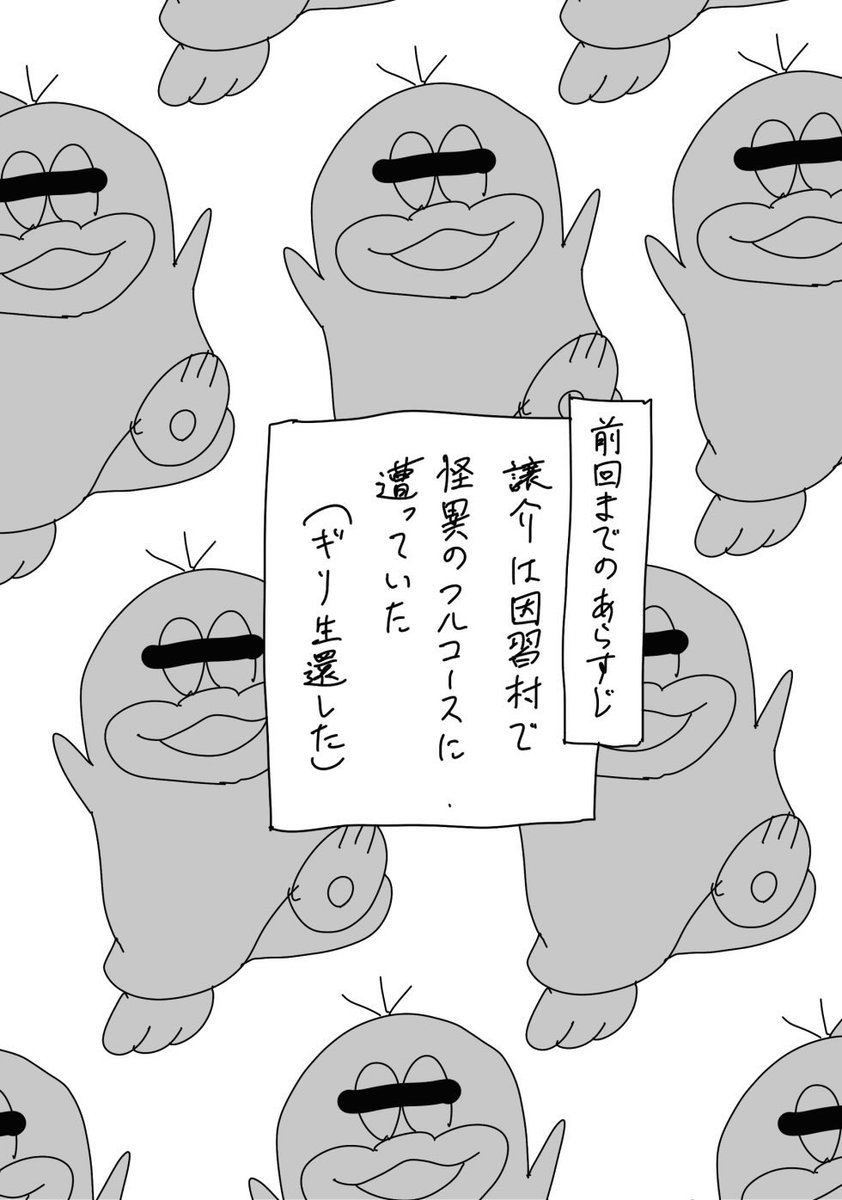 前回までのあらすじ
譲介は因習村で
怪異のフルコースに
遭っていた
(ギリ生還した)